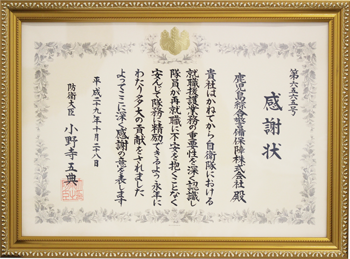 第六五六五号
感謝状
鹿児島綜合警備保障株式会社 殿
貴社はかねてから自衛隊における
就職援護業務の重要性を深く認識し
隊員が再就職に不安を抱くことなく
安んじて隊務に精励できるよう永年に
わたり多大の貢献をされました
よってここに深く感謝の意を表します
平成二十九年十月二十八日
防衛大臣 小野寺五典